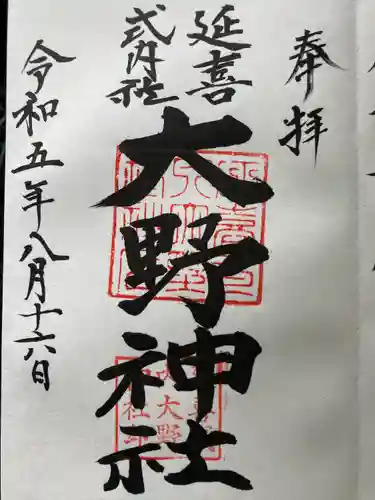 奉拝
延喜
式内社
大野神社
令和五年八月十六日